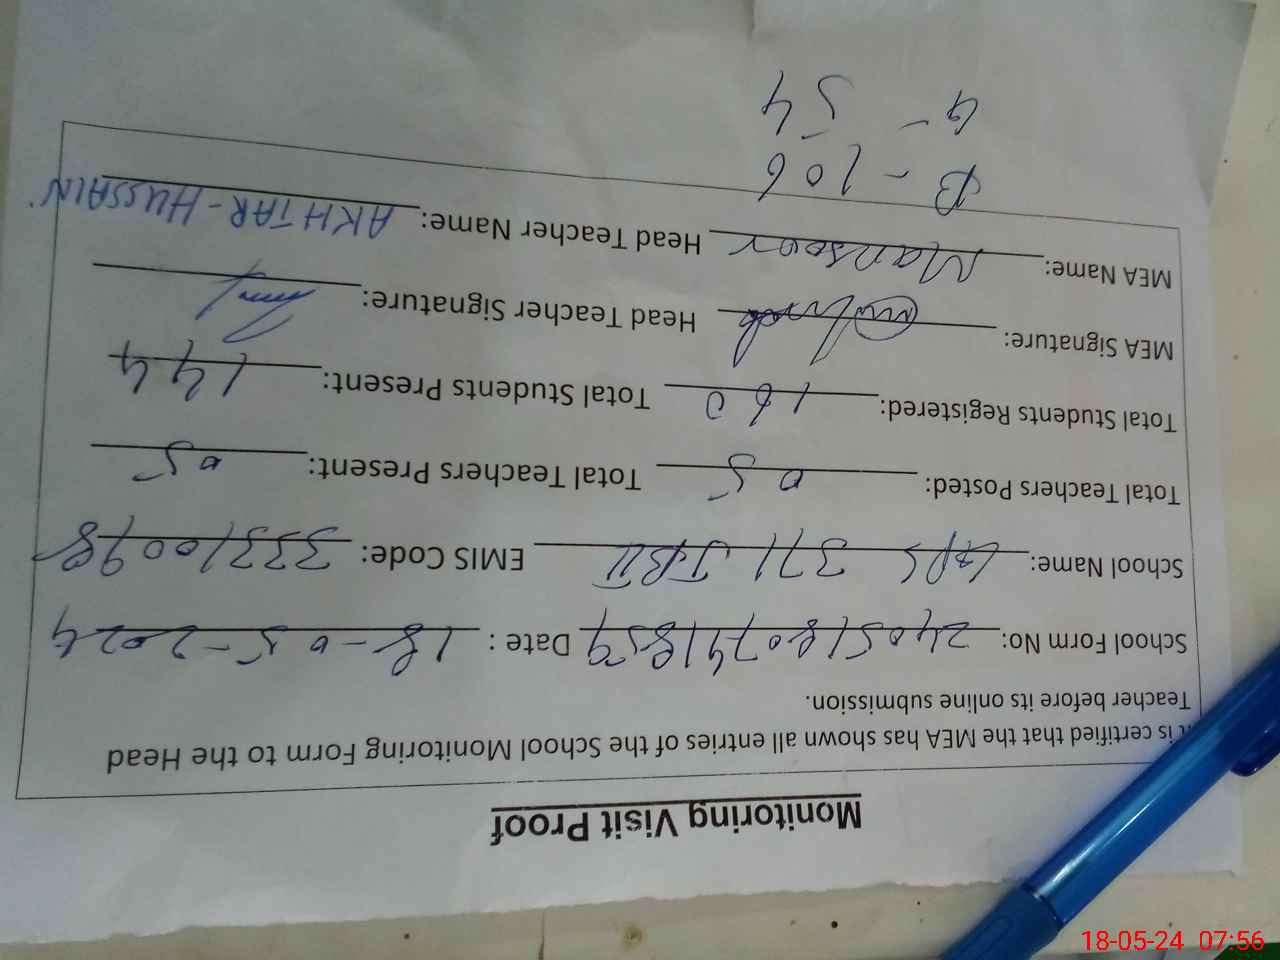 Monitoring Visit Proof
It is certified that the MEA has shown all entries of the School Monitoring Form to the Head
Teacher before its online submission.
School Form No: 24051807418559 Date : 18-05-2024
School Name: GPS 371 JB II EMIS Code: 33310098
Total Teachers Posted: 05 Total Teachers Present: 05
Total Students Registered: 160 Total Students Present: 144
MEA Signature: Head Teacher Signature:
MEA Name: Mansoor Head Teacher Name: AKHTAR-HUSSAIN
B - 106
G - 54
18-05-24 07:56